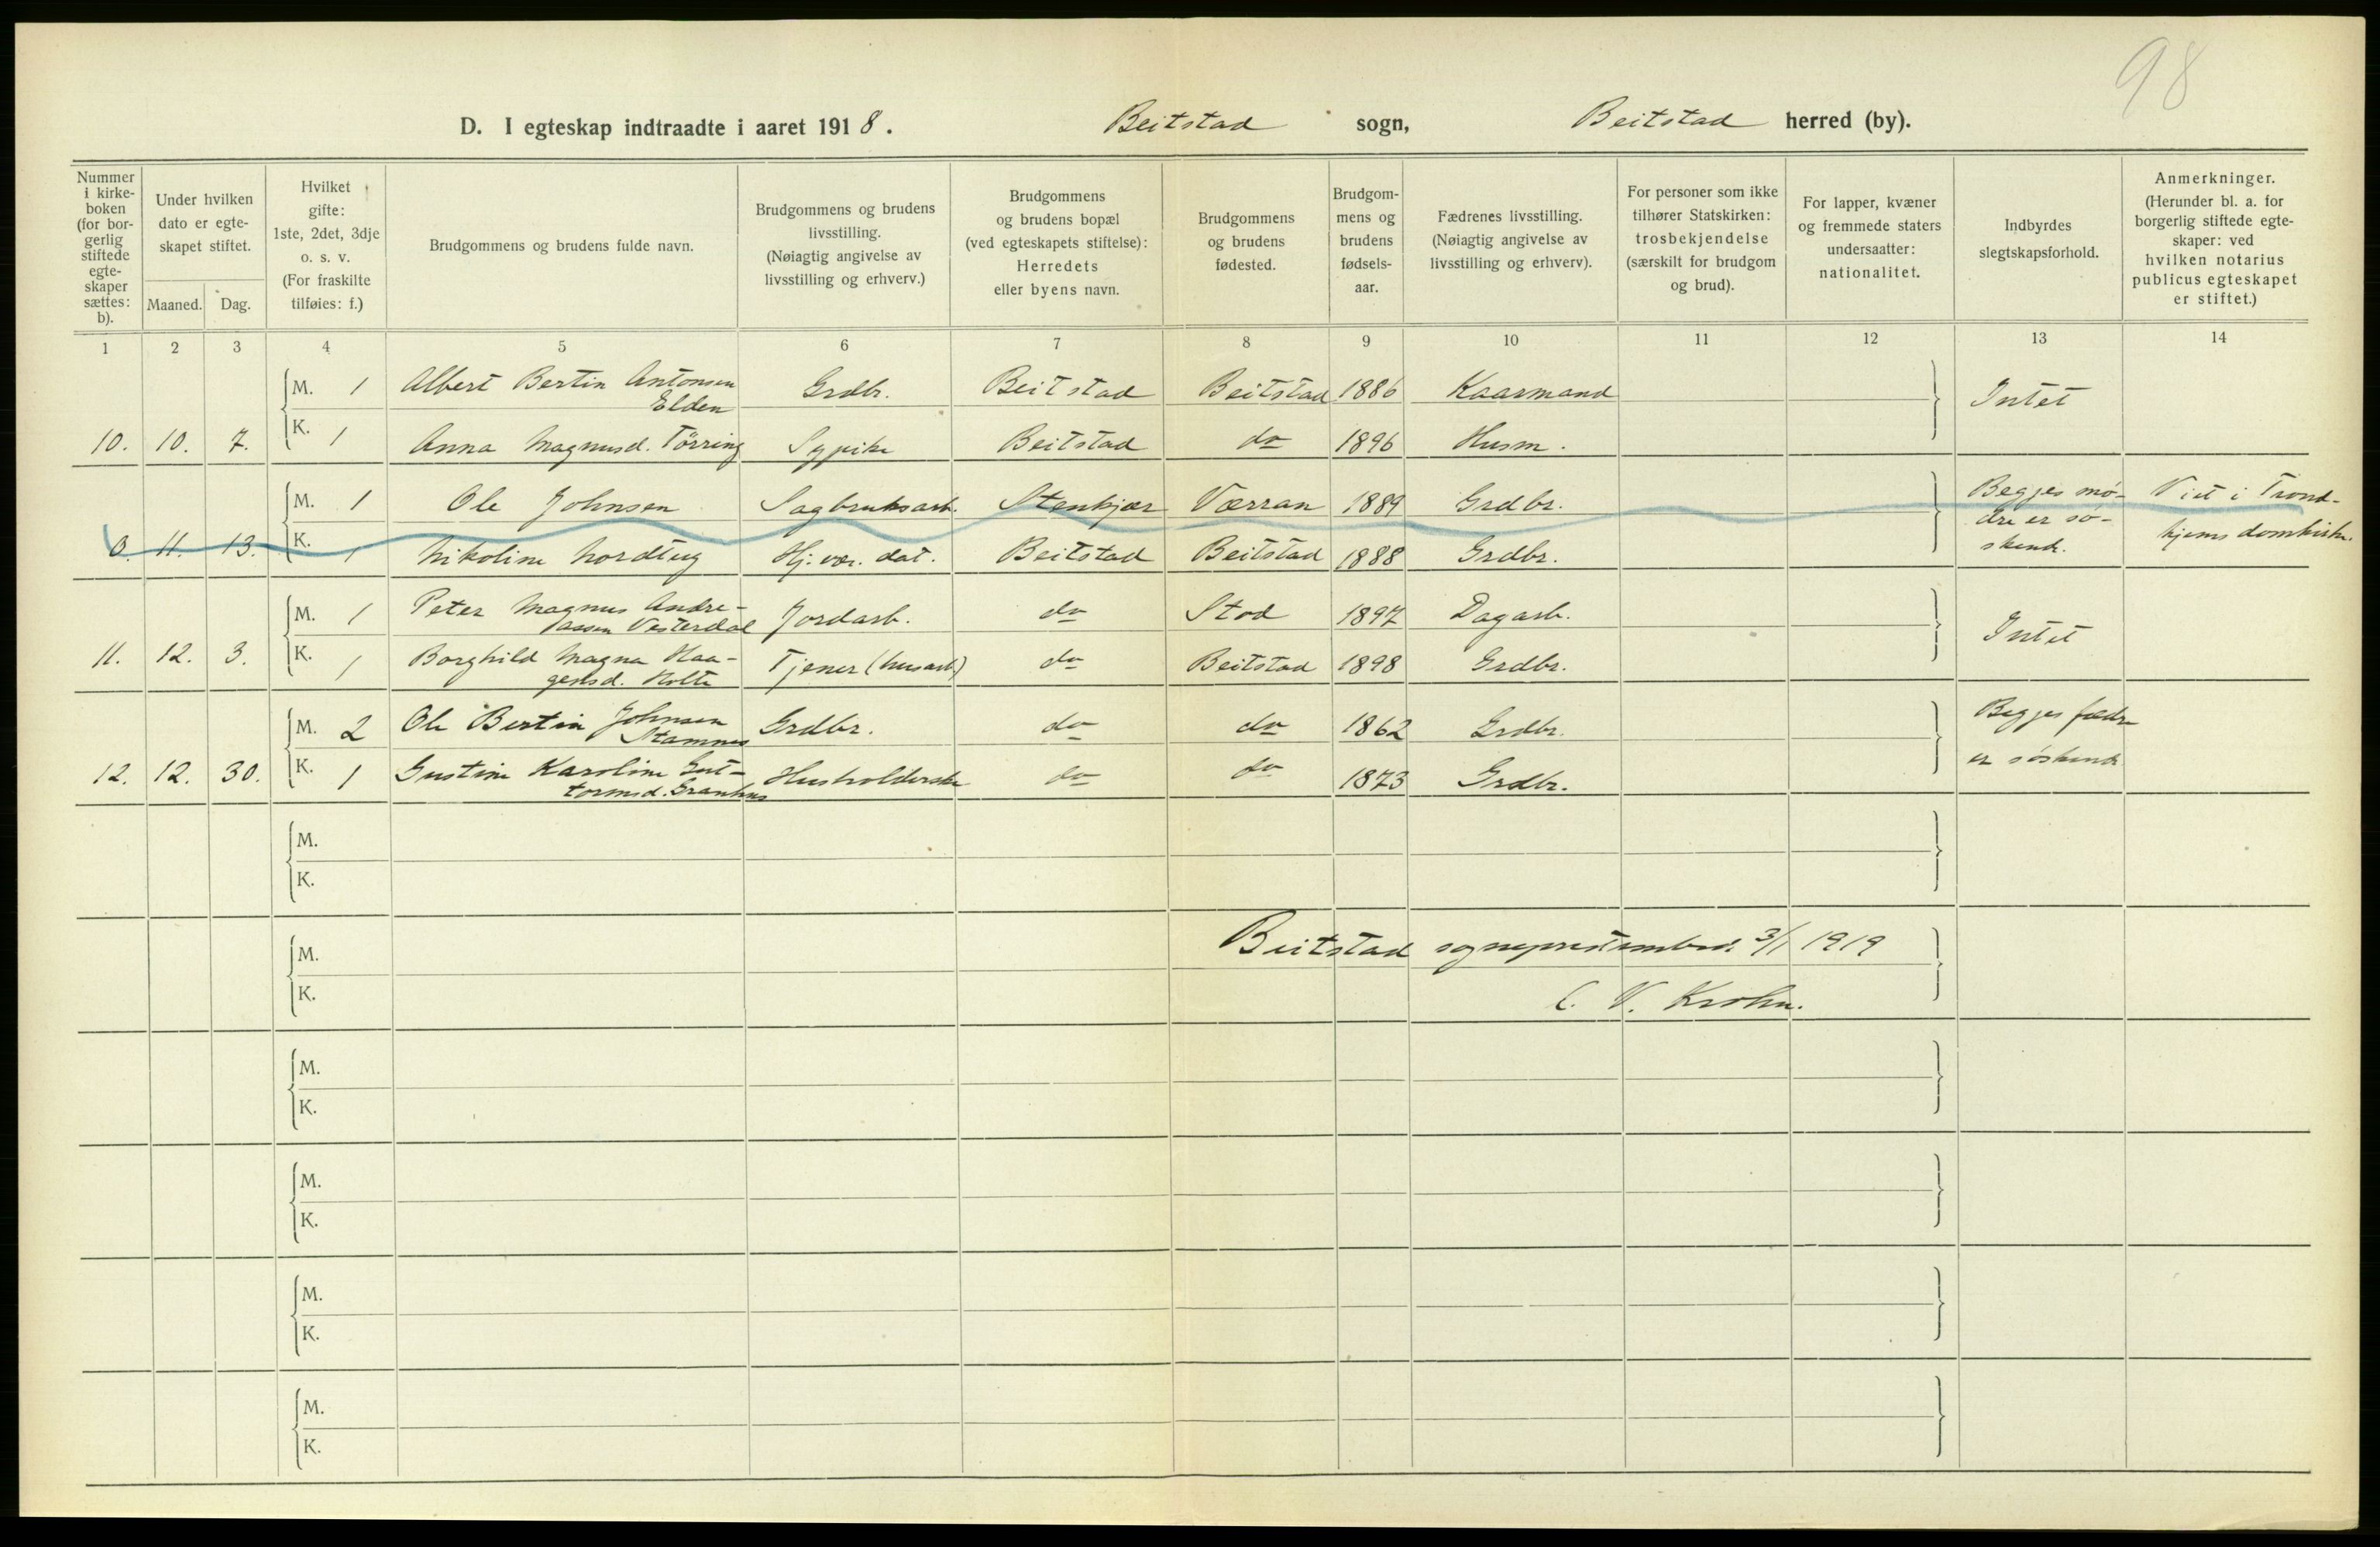 98
D. I egteskap indtraadte i aaret 1918. Beitstad sogn, Beitstad herred (by).
Nummer i kirke-boken (for bor-gerlig stiftede egte-skaper sættes: b).
Under hvilken dato er egte-skapet stiftet.
Maaned. Dag.
Hvilket gifte: 1ste, 2det, 3dje o. s. v. (For fraskilte tilføies: f.)
Brudgommens og brudens fulde navn.
Brudgommens og brudens livsstilling. (Nøiagtig angivelse av livsstilling og erhverv.)
Brudgommens og brudens bopæl (ved egteskapets stiftelse): Herredets eller byens navn.
Brudgommens og brudens fødested.
Brudgom-mens og brudens fødsels-aar.
Fædrenes livsstilling. (Nøiagtig angivelse av livsstilling og erhverv).
For personer som ikke tilhører Statskirken: trosbekjendelse (særskilt for brudgom og brud).
For lapper, kvæner og fremmede staters undersaatter: nationalitet.
Indbyrdes slegtskapsforhold.
Anmerkninger. (Herunder bl. a. for borgerlig stiftede egte-skaper: ved hvilken notarius publicus egteskapet er stiftet.)
1 2 3 4 5 6 7 8 9 10 11 12 13 14
M. 1 Albert Bertin Antonsen Elden Grdbr. Beitstad Beitstad 1886 Kaarmand Intet
10. 10. 7. K. 1 Anna Magnusd. Törring Sypike Beitstad do 1896 Husm.
M. 1 Ole Johnsen Sagbruksarb. Stenkjær Værran 1889 Grdbr. Begges mö-dre er sö-skende. Viet i Trond-hjems domkirke.
0. 11. 13. K. 1 Nikoline Nordtug Hj. vær. dat. Beitstad Beitstad 1888 Grdbr.
M. 1 Peter Magnus Andre-assen Vesterdal Jordarb. do Stod 1897 Dagarb. Intet
11. 12. 3. K. 1 Borghild Magna Haa-gensd. Holte Tjener (husarb) do Beitstad 1898 Grdbr.
M. 2 Ole Bertin Johnsen Stamnes Grdbr. do do 1862 Grdbr. Begges fædre er söskende
12. 12. 30. K. 1 Gustine Karoline Gut-tormsd. Granhus Husholderske do do 1873 Grdbr.
M.
K.
M. Beitstad sogneprestembede 3/1 1919
K. C. V. Krohn.
M.
K.
M.
K.
M.
K.
M.
K.